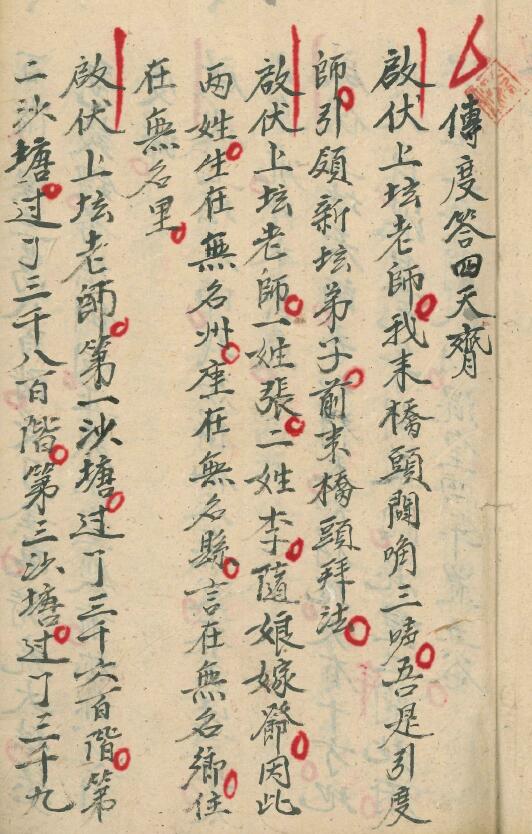 傳度答四天齊
啟伏上坛老師我来橋頭闘角三咦吾是引度
師引領新坛弟子前来橋頭拜法
啟伏上坛老師一姓張二姓李隨娘嫁爺因此
两姓生在無名州座在無名縣言在無名鄉住
在無名里
啟伏上坛老師第一沙塘过了三千六百階第
二沙塘过了三千八百階第三沙塘过了三千九